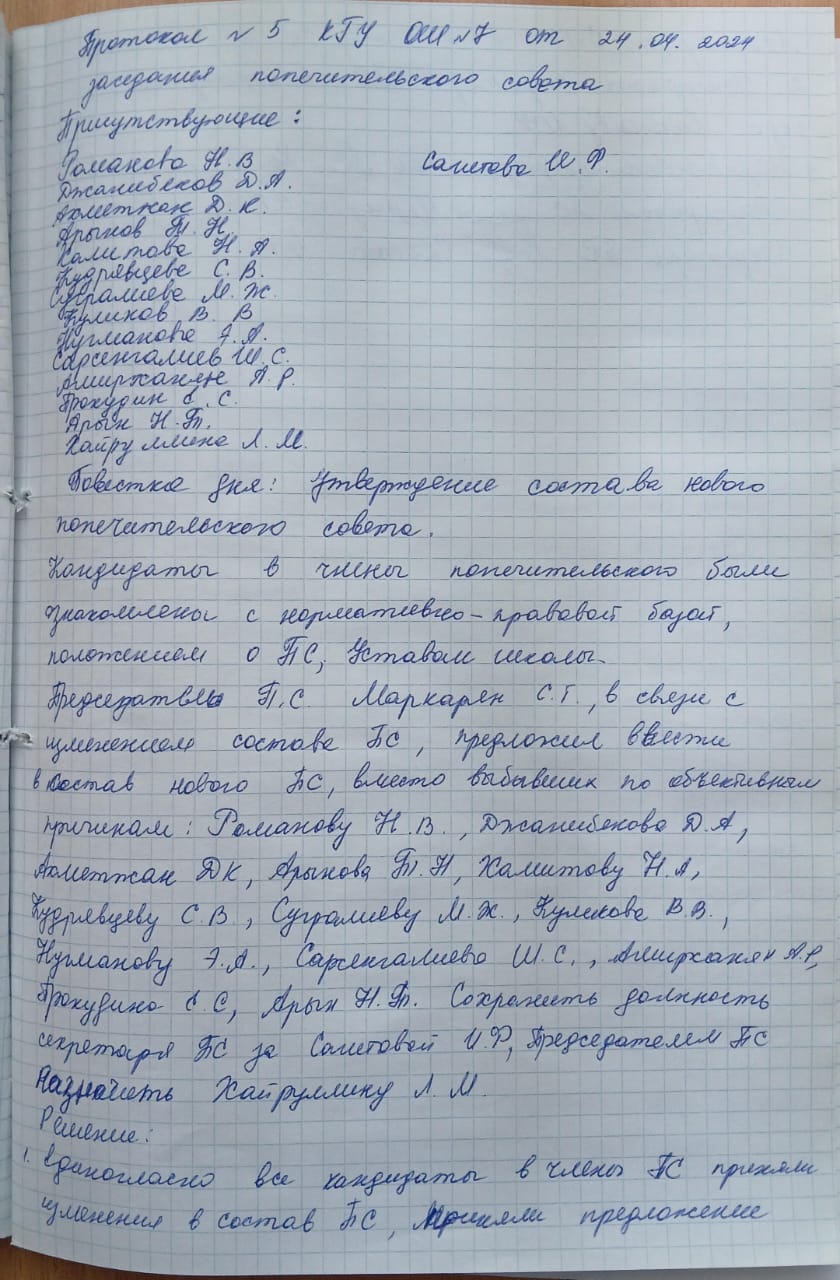 Протокол № 5 КГУ ОШ №7 от 24.04.2024
заседания попечительского совета
Присутствующие:
Романова Н.В Саитова И.Ф.
Джанибеков Д.А.
Ахметжан Д.К.
Арынов Т.Н.
Хамитова Н.А.
Кудрявцева С.В.
Сугралиева М.Ж.
Куликов В.В
Нугманова Э.А.
Сарсенгалиев Ш.С.
Амирханян А.Р.
Прокудин Е.С.
Арын Н.Т.
Хайруллина Л.М.
Повестка дня: Утверждение состава нового
попечительского совета.
Кандидаты в члены попечительского были
ознакомлены с нормативно-правовой базой,
положением о ПС, Уставом школы.
Председатель П.С. Маркарян С.Г., в связи с
изменением состава ПС, предложил ввести
в состав нового ПС, вместо выбывших по объективным
причинам: Романову Н.В., Джанибекова Д.А,
Ахметжан ДК, Арынова Т.Н, Хамитову Н.А,
Кудрявцеву С.В, Сугралиеву М.Ж., Куликова В.В.,
Нугманову Э.А., Сарсенгалиева Ш.С., Амирханян А.Р,
Прокудина Е.С, Арын Н.Т. Сохранить должность
секретаря ПС за Саитовой И.Ф, Председателем ПС
Назначить Хайруллину Л.М.
Решение:
1. Единогласно все кандидаты в члены ПС приняли
изменения в состав ПС, Приняли предложение